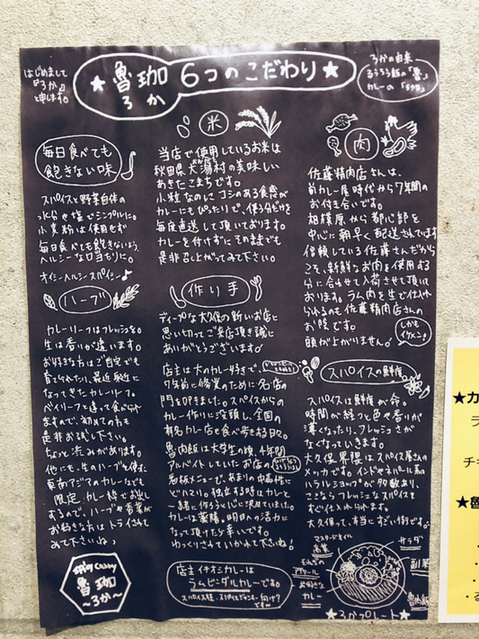 はじめまして
『ろか』と
申します。
★ 魯珈 6つのこだわり ★
ろか
ろかの由来
るうろう飯の「魯」
カレーの「珈」
毎日食べても
飽きない味
スパイスと野菜自体の
水分や塩でシンプルに。
小麦粉は使用せず
毎日食べても飽きないよう、
ヘルシーな口当たりに。
オイシーヘルシースパイシー♪
ハーブ
カレーリーフはフレッシュを。
生は香りが違います。
お好きな方はご自宅でも
育てられたり、最近身近に
なってきたカレーリーフ。
ベイリーフと違って食べられ
ますので、初めての方も
是非お試し下さい。
ちょっと渋みがあります。
他にも、生のハーブを使用した
東南アジアのカレーなども
限定カレー枠でお出し
するので、ハーブや香菜が
お好きな方はトライされて
みて下さいね♪
SPICY CURRY
魯珈
〜ろか〜
米
当店で使用しているお米は
秋田県大潟村の美味しい
あきたこまちです。
小粒なのにコシのある食感が
カレーにもぴったりで、使う分だけを
毎度直送して頂いております。
カレーを付けずにそのままでも
是非召し上がってみて下さい。
作り手
ディープな大久保の新しいお店に
思い切ってご来店頂き誠に
ありがとうございます。
店主は大のカレー好きで
7年前に修業のために名店の
門を叩きました。スパイスから
カレー作りに没頭し、全国の
有名カレー店も食べ歩きる日々。
魯肉飯は大学生の頃、4年間
アルバイトしていたお店の
名版メニューで、あまりの中毒性に
どハマり。独立する時はカレーと
一緒に作ろう♪いに決めていました。
カレーは薬膳。明日への活力に
なって頂けたら幸いです。
ゆっくりされていかれて下さいね!
店主イチオシカレーは
ラムビンダルカレーです。
肉
佐藤精肉店さんは、
前カレー屋時代から7年間の
お付き合いです。
相模原から都心部を
中心に朝早く配送されています
信頼している佐藤さんだから
こそ、新鮮なお肉を使用する
分に合せて入荷させて頂いて
おります。ラム肉を生で仕入れ
られるのも佐藤精肉店さんの
お陰です。
頭が上がりません。
しかも
イケメン!
スパイスの鮮度
スパイスは鮮度が命。
時間が経つと色や香りが
薄くなったり、フレッシュさが
なくなっていきます。
大久保界隈はスパイス屋さんの
メッカです。インドやネパール系の
ハラルショップが多数あり、
ここならフレッシュなスパイスを
すぐ仕入れられます。
大久保って、本当にすごい街です。
サラダ
副菜
魯肉飯
カレー
★ろかプレート★